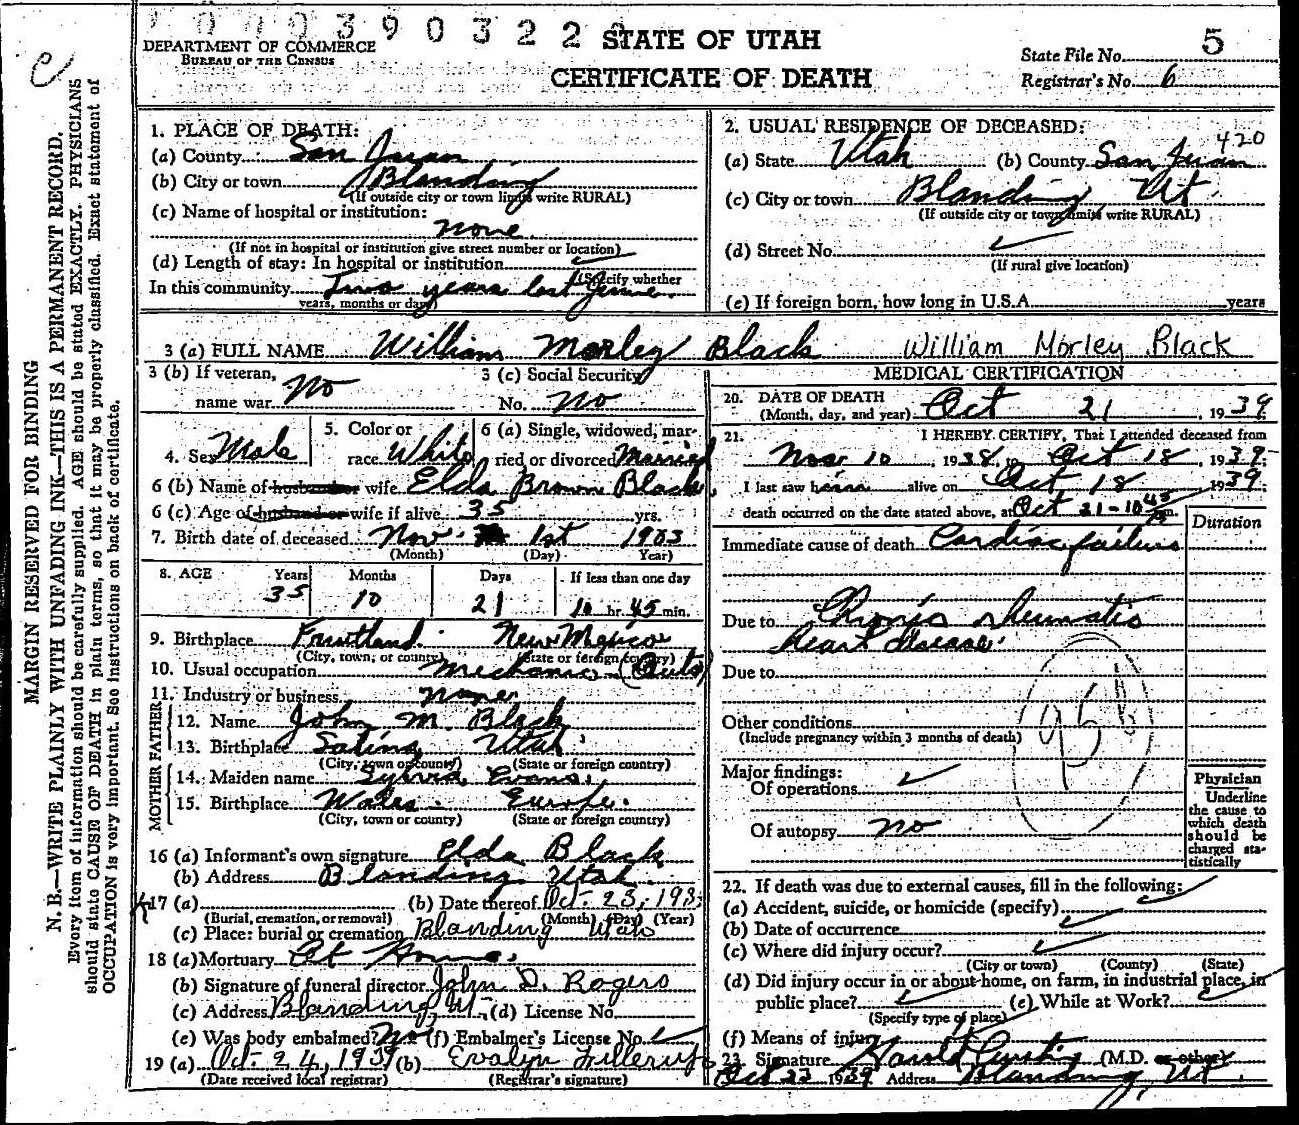 0 0 0 3 9 0 3 2 2
DEPARTMENT OF COMMERCE
BUREAU OF THE CENSUS
STATE OF UTAH
CERTIFICATE OF DEATH
State File No. 5
Registrar's No. 6
MARGIN RESERVED FOR BINDING
N. B.—WRITE PLAINLY WITH UNFADING INK—THIS IS A PERMANENT RECORD.
Every item of information should be carefully supplied. AGE should be stated EXACTLY. PHYSICIANS
should state CAUSE OF DEATH in plain terms, so that it may be properly classified. Exact statement of
OCCUPATION is very important. See instructions on back of certificate.
1. PLACE OF DEATH:
(a) County San Juan
(b) City or town Blanding
(If outside city or town limits write RURAL)
(c) Name of hospital or institution:
None
(If not in hospital or institution give street number or location)
(d) Length of stay: In hospital or institution
(Specify whether
In this community Two years last June
years, months or days)
2. USUAL RESIDENCE OF DECEASED:
420
(a) State Utah (b) County San Juan
(c) City or town Blanding, Ut
(If outside city or town limits write RURAL)
(d) Street No.
(If rural give location)
(e) If foreign born, how long in U.S.A. years
3 (a) FULL NAME William Morley Black William Morley Black
3 (b) If veteran,
name war No
3 (c) Social Security
No. No
4. Sex Male
5. Color or
race White
6 (a) Single, widowed, mar-
ried or divorced Married
6 (b) Name of husband or wife Elda Brown Black
6 (c) Age of husband or wife if alive 35 yrs.
7. Birth date of deceased Nov. 1st 1903
(Month) (Day) (Year)
8. AGE Years Months Days If less than one day
35 10 21 10 hr. 45 min.
9. Birthplace Fruitland New Mexico
(City, town, or county) (State or foreign country)
10. Usual occupation Mechanic (Auto)
11. Industry or business None
FATHER
12. Name John M. Black
13. Birthplace Salina Utah
(City, town or county) (State or foreign country)
MOTHER
14. Maiden name Sylvia Evans
15. Birthplace Wales Europe
(City, town or county) (State or foreign country)
16 (a) Informant's own signature Elda Black
(b) Address Blanding Utah
17 (a) (b) Date thereof Oct. 23, 193
(Burial, cremation, or removal) (Month) (Day) (Year)
(c) Place: burial or cremation Blanding Utah
18 (a) Mortuary At Home
(b) Signature of funeral director John D. Rogers
(c) Address Blanding, Ut. (d) License No.
(e) Was body embalmed? No (f) Embalmer's License No.
19 (a) Oct. 24, 1939 (b) Evalyn
(Date received local registrar) (Registrar's signature)
MEDICAL CERTIFICATION
20. DATE OF DEATH
(Month, day, and year) Oct 21, 1939
21. I HEREBY CERTIFY, That I attended deceased from
Nov 10, 1938, to Oct 18, 1939
I last saw him alive on Oct 18 1939;
death occurred on the date stated above, at Oct 21-10 45 m.
Duration
Immediate cause of death Cardiac failure
Due to Chronic rheumatic
heart disease
Due to
Other conditions
(Include pregnancy within 3 months of death)
95b
Major findings:
Of operations
Of autopsy no
Physician
Underline
the cause to
which death
should be
charged sta-
tistically
22. If death was due to external causes, fill in the following:
(a) Accident, suicide, or homicide (specify)
(b) Date of occurrence
(c) Where did injury occur?
(City or town) (County) (State)
(d) Did injury occur in or about home, on farm, in industrial place, in
public place? (e) While at Work?
(Specify type of place)
(f) Means of injury
23. Signature Harold (M.D. or other)
Oct 23 1939 Address Blanding, Ut.